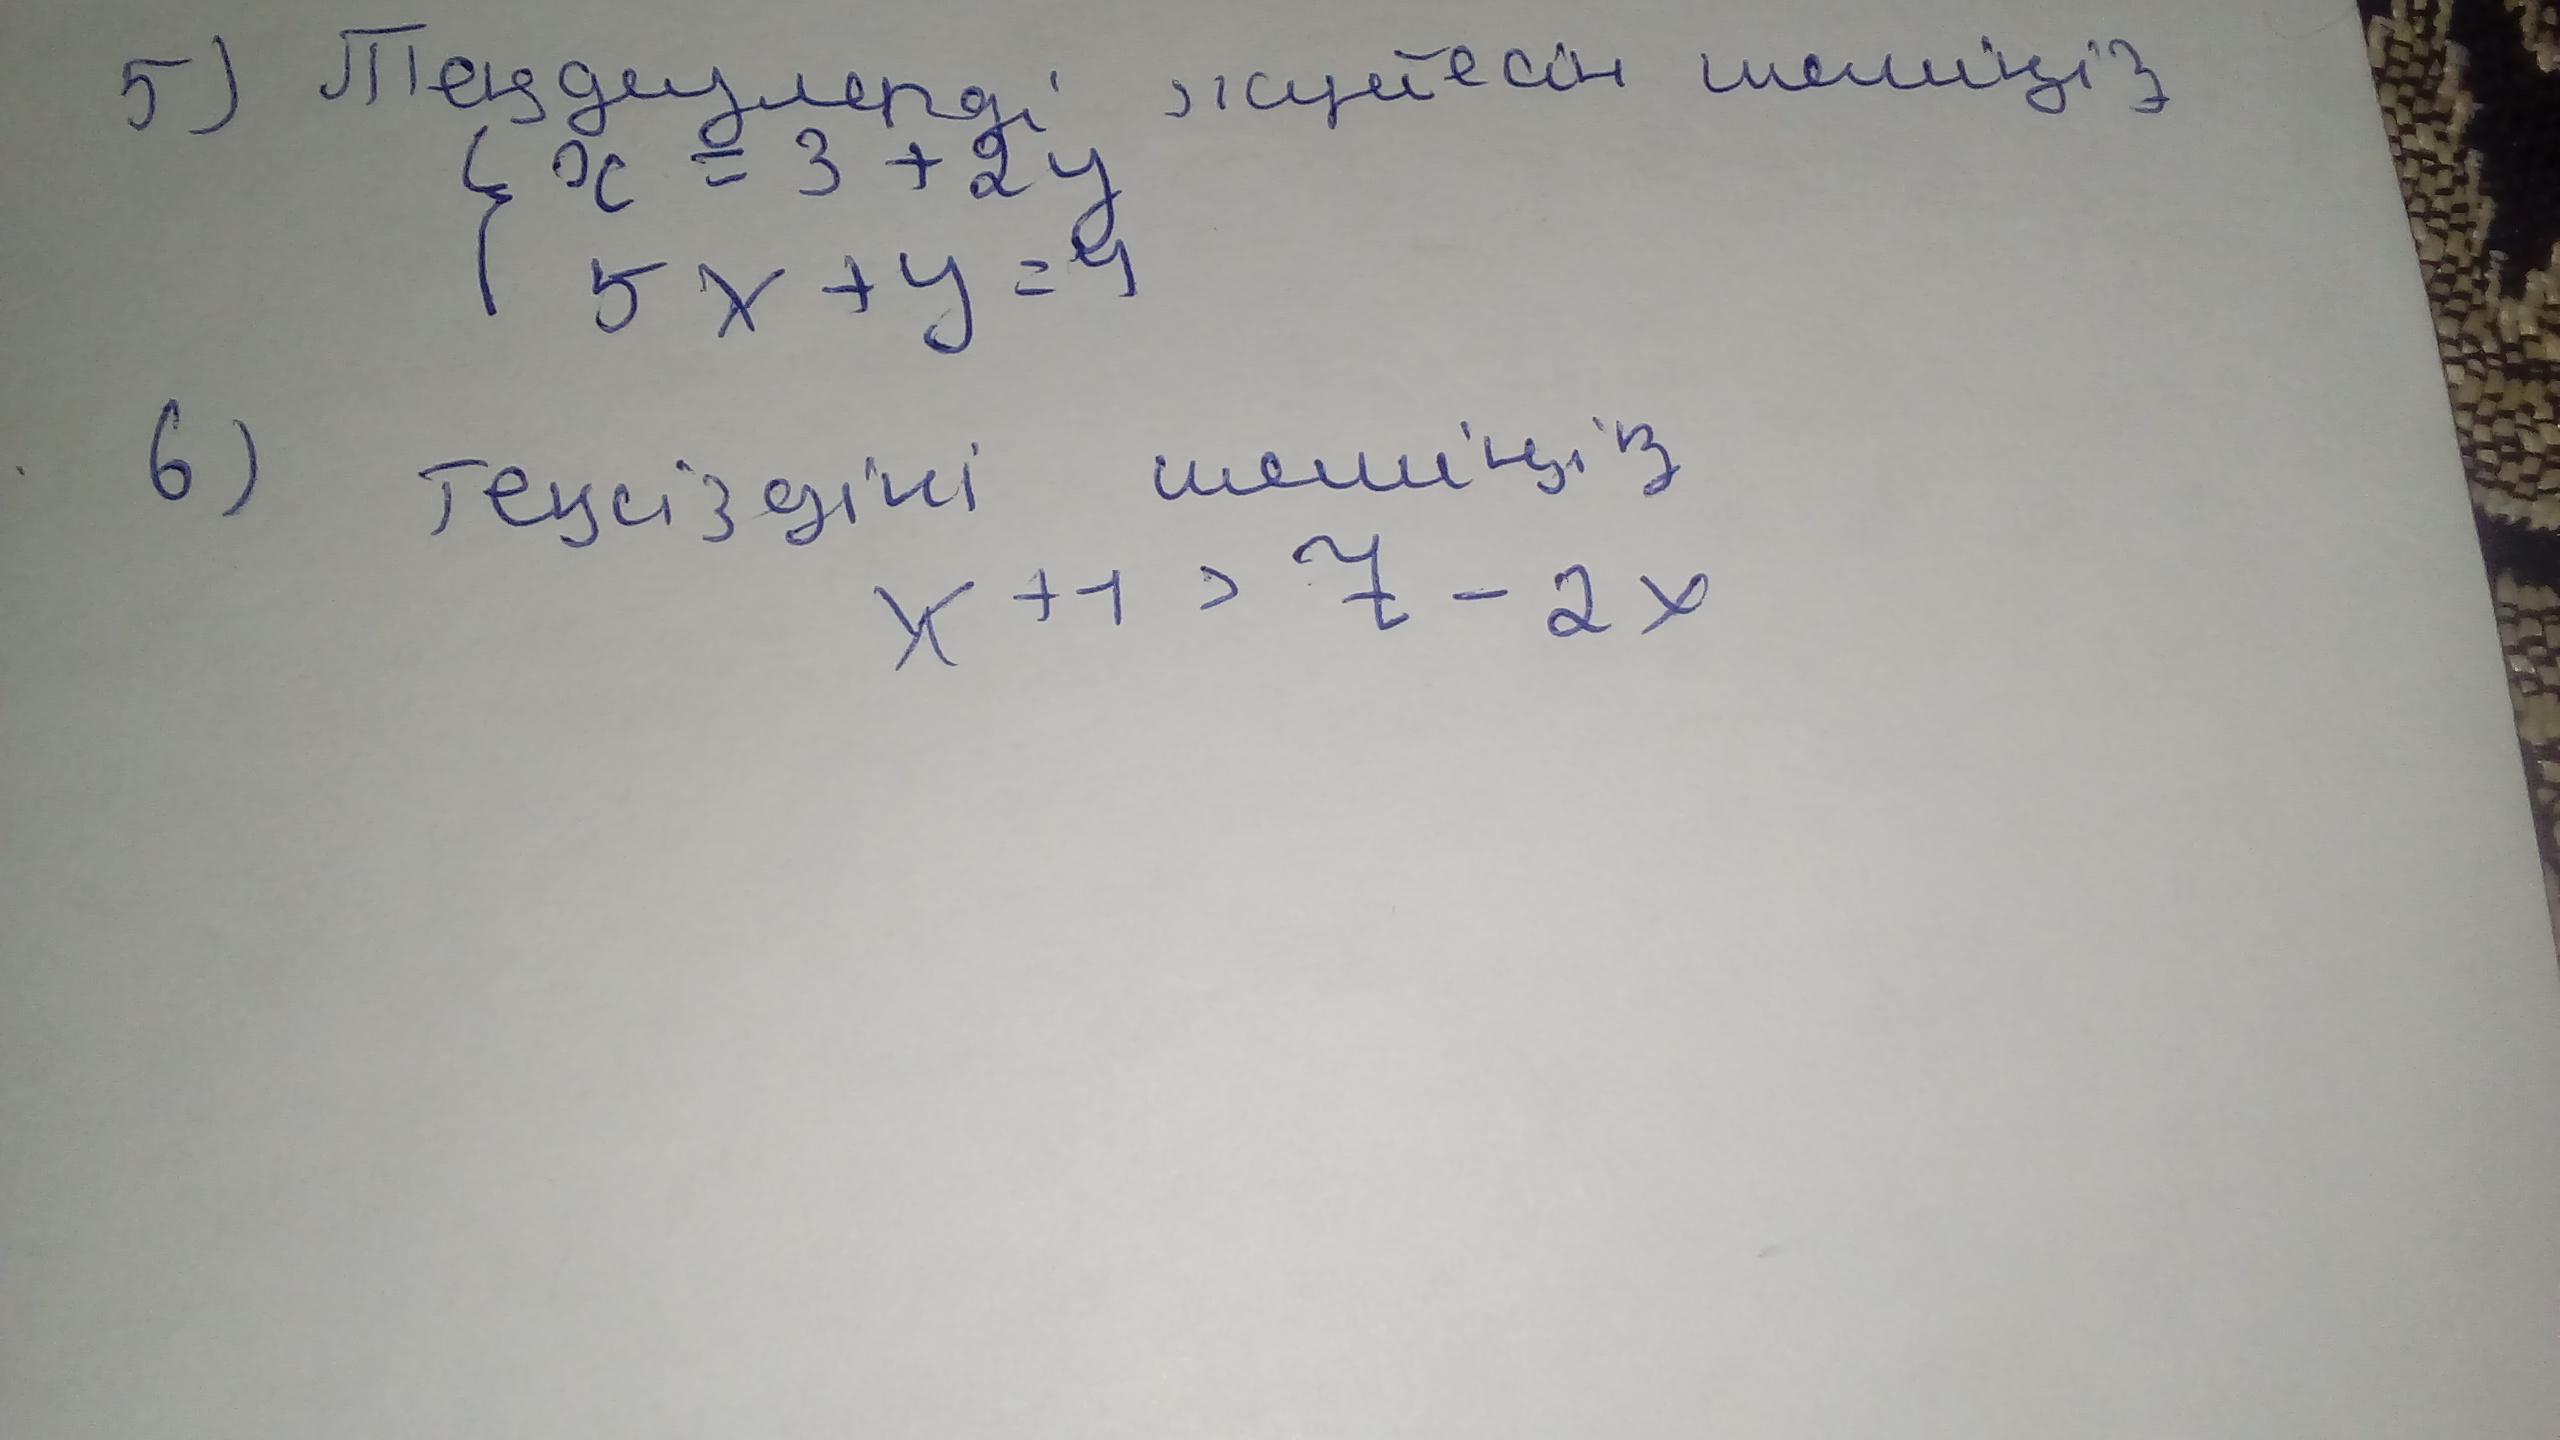 5) Теңдеулерді жүйесін шешіңіз
{ x = 3 + 2y
5x + y = 4
6) теңсіздікі шешіңіз
x + 1 > 7 - 2x